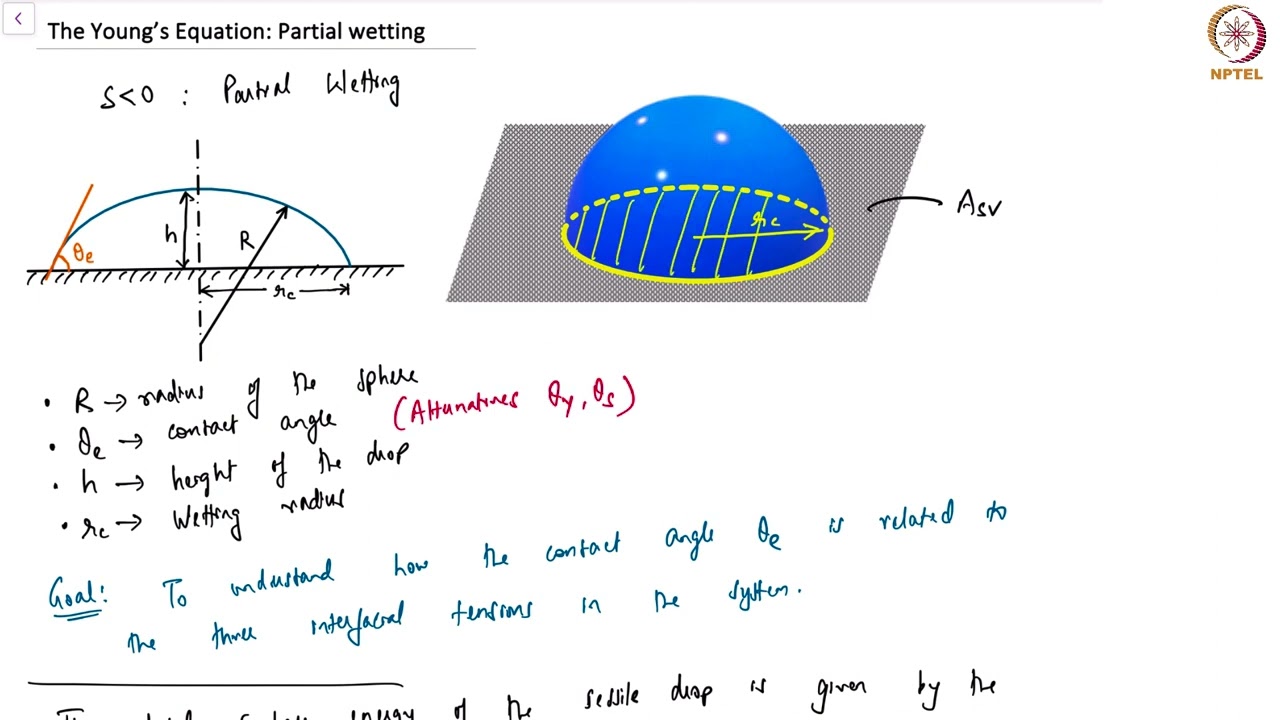 The Young's Equation: Partial wetting
NPTEL
S<0 : Partial Wetting
h
R
θe
rc
rc
Asv
• R → radius of the sphere
• θe → contact angle (Alternatives θy, θs)
• h → height of the drop
• rc → Wetting radius
Goal: To understand how the contact angle θe is related to
the three interfacial tensions in the system.
of the sessile drop is given by the